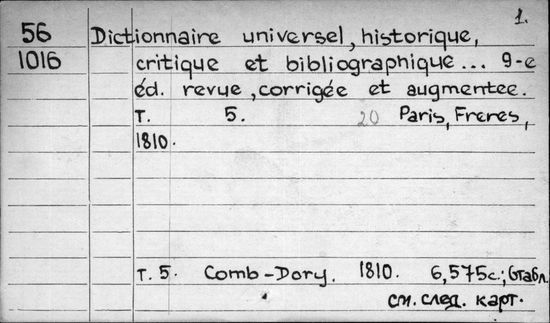 1.
56 Dictionnaire universel, historique,
1016 critique et bibliographique... 9-e
éd. revue, corrigée et augmentee.
T. 5. 20 Paris, Freres,
1810.
т. 5. Comb-Dory. 1810. 6,575с.; 6табл.
см. след. карт.